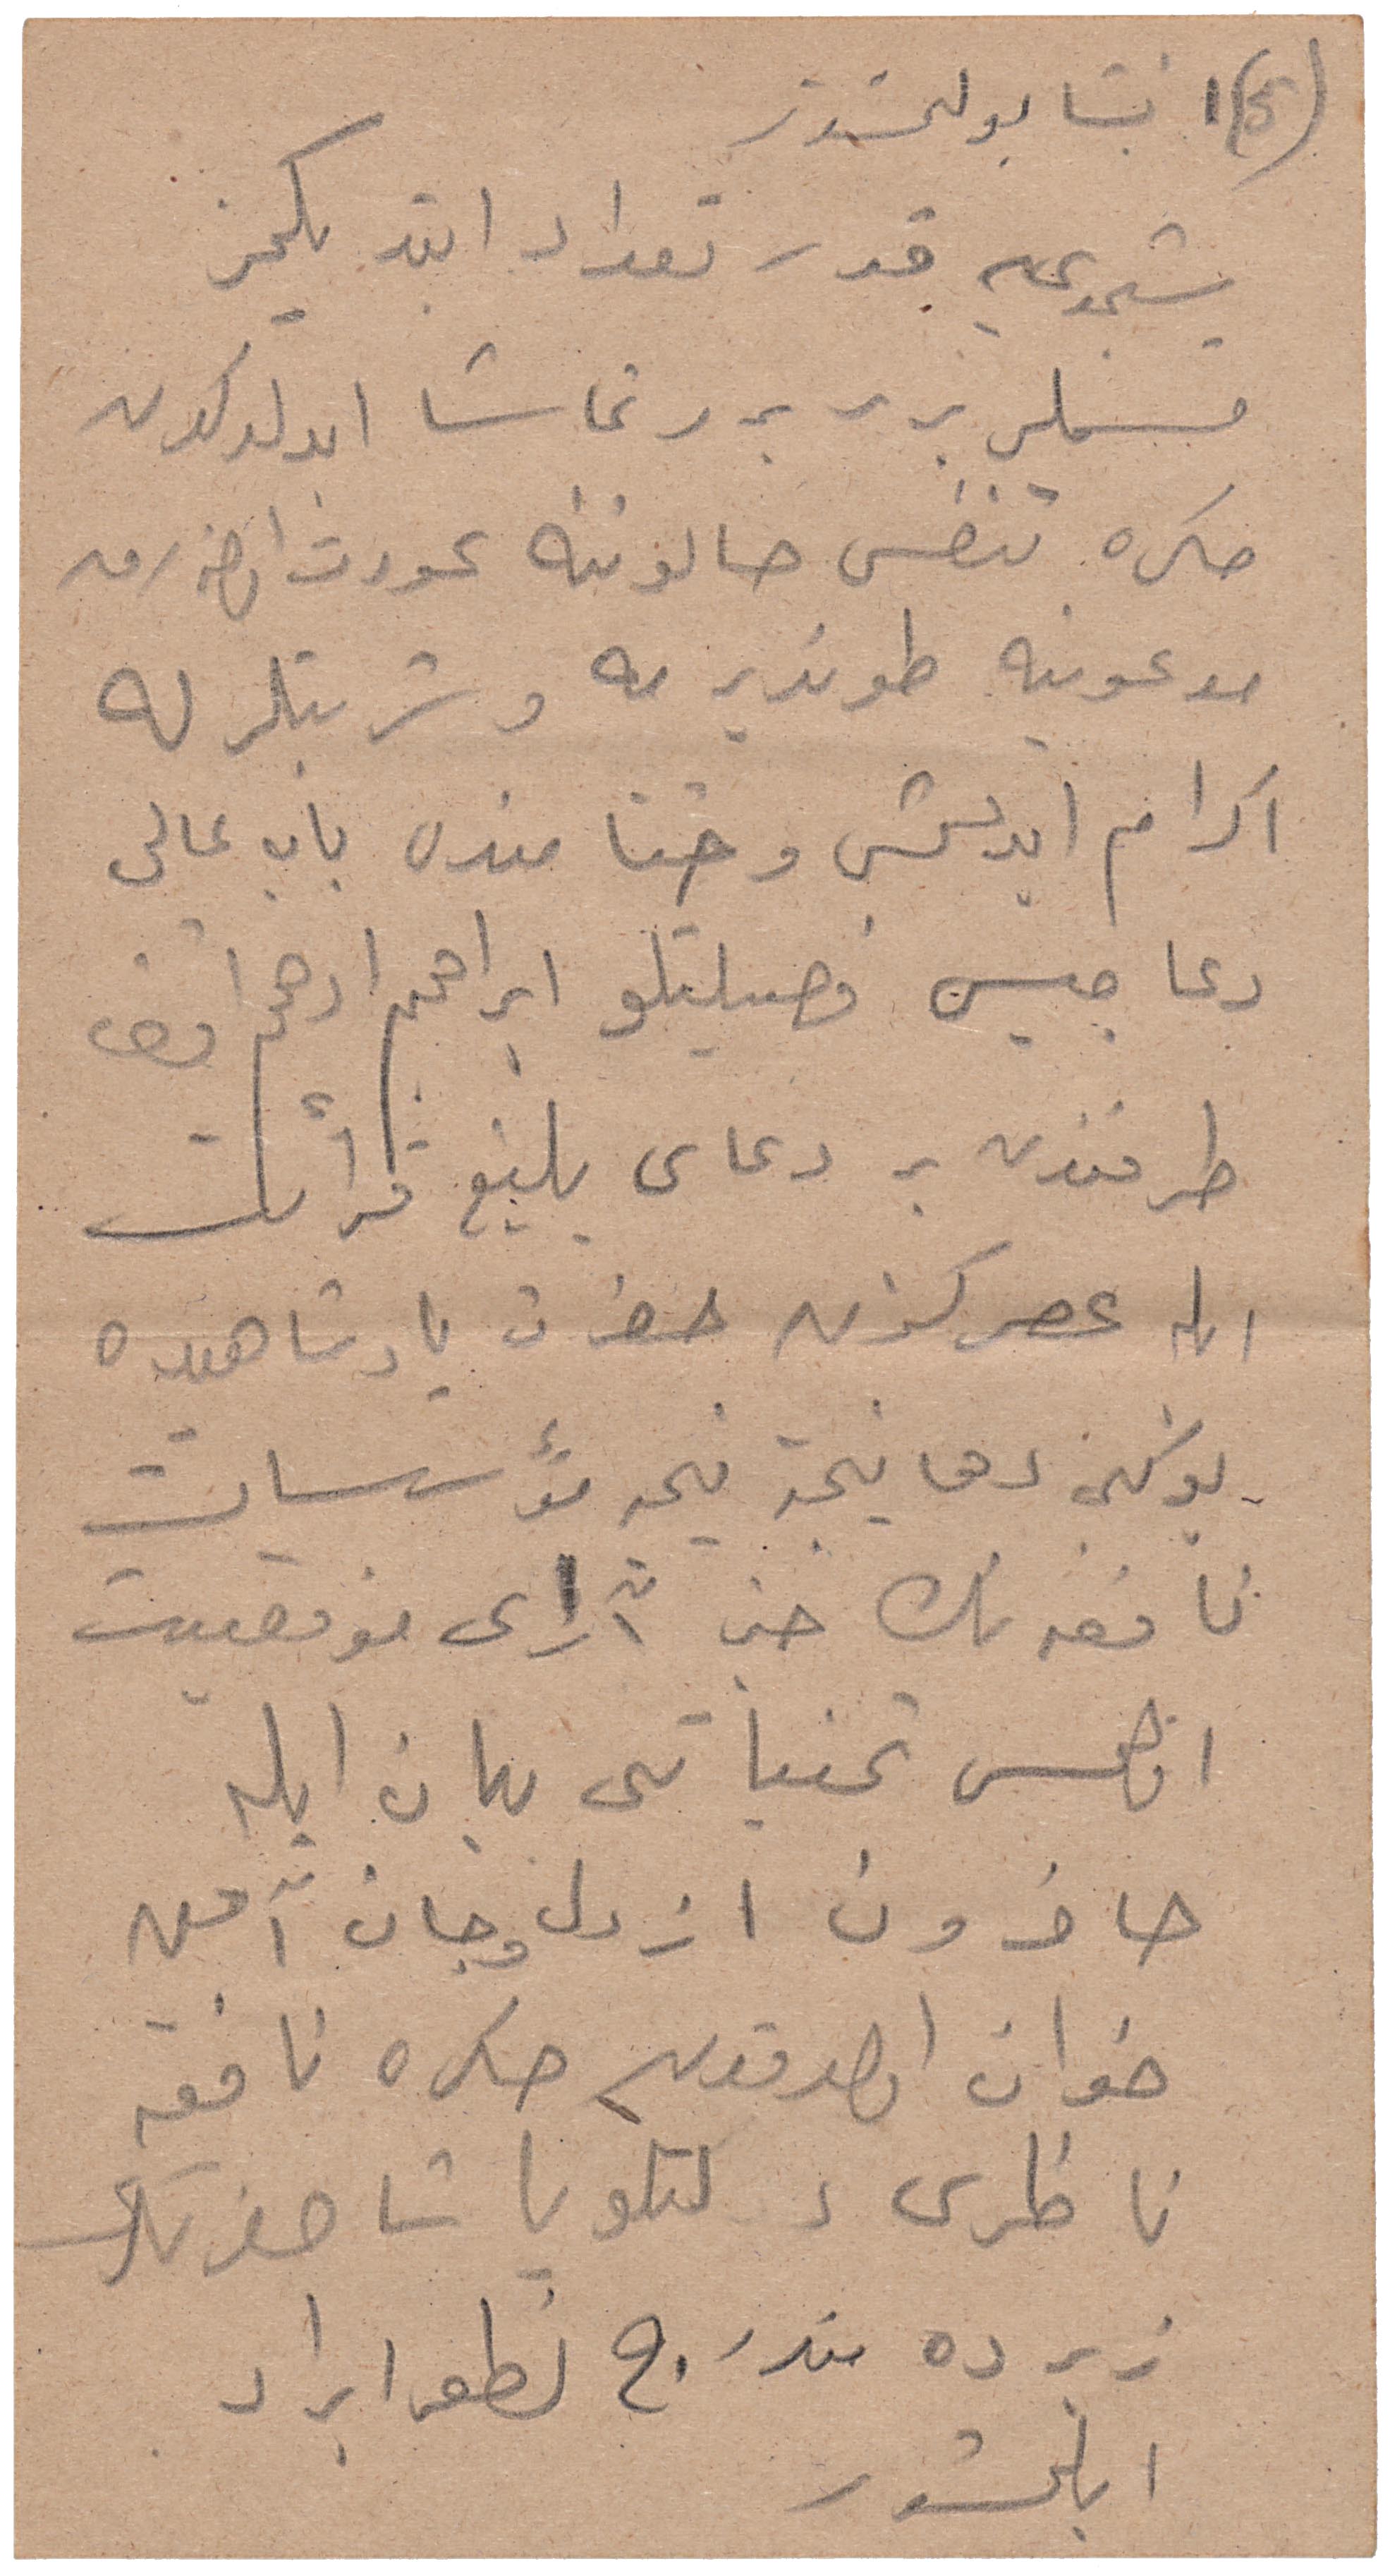 (٥) ١ بنا بولمشدر
شمدییه قدر تعداد ایتدیكمز
قسملر برر برر تماشا ایدلدكدن
صكره تنفس صالوننه عودت اولنه‌رق
مدعوینه طوندیرمه و شربتلر له
اكرام ایدلمش و ختامنده باب عالی
دعاجیسی فضیلتلو ابراهیم ادهم افندی
طرفندن بر دعای بلیغ قرائت
ایله عصر كزین حضرت پادشاهیده
بونك دها نیجه نیجه مؤسسات
نافعه‌نك حیز آرای موفقیت
اولمسی تمنیاتی بیان ایله
حاضرون از دل و جان آمین
خوان اولدقدن صكره نافعه
ناظری دولتلو پاشا حضرتلری
زیرده مندرج نطقی ایراد
ایلمشدر